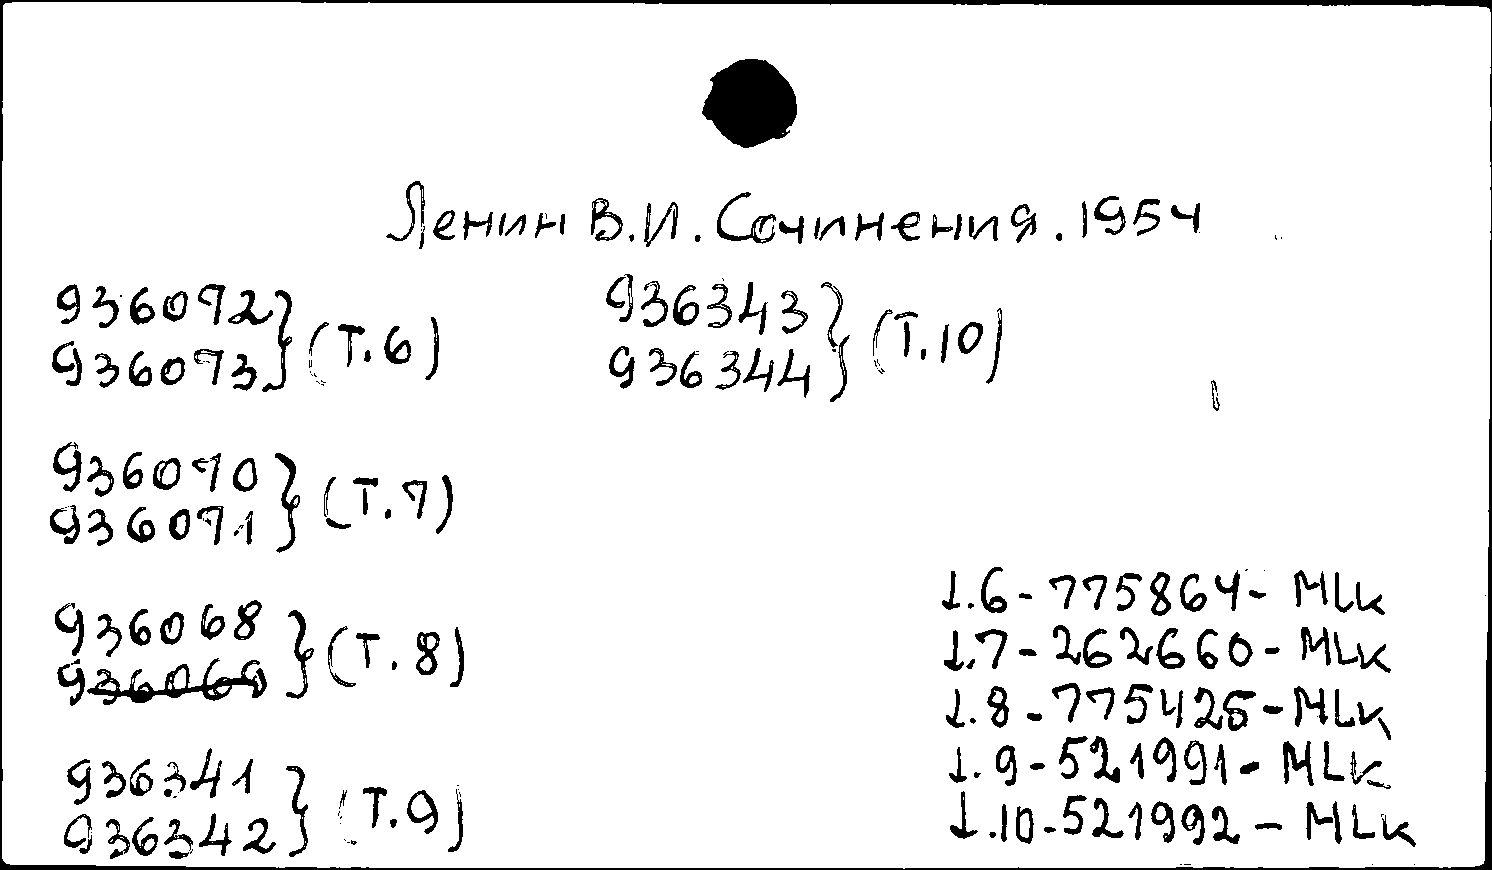 Ленин В.И. Сочинения. 1954
936072
936073 } (Т.6)
936343
936344 } (Т.10)
936070
936071 } (Т.7)
936068
936069 } (Т.8)
936341
936342 } (Т.9)
1.6 - 775864 - MLk
1.7 - 262660 - MLk
1.8 - 775425 - MLk
1.9 - 521991 - MLk
1.10 - 521992 - MLk